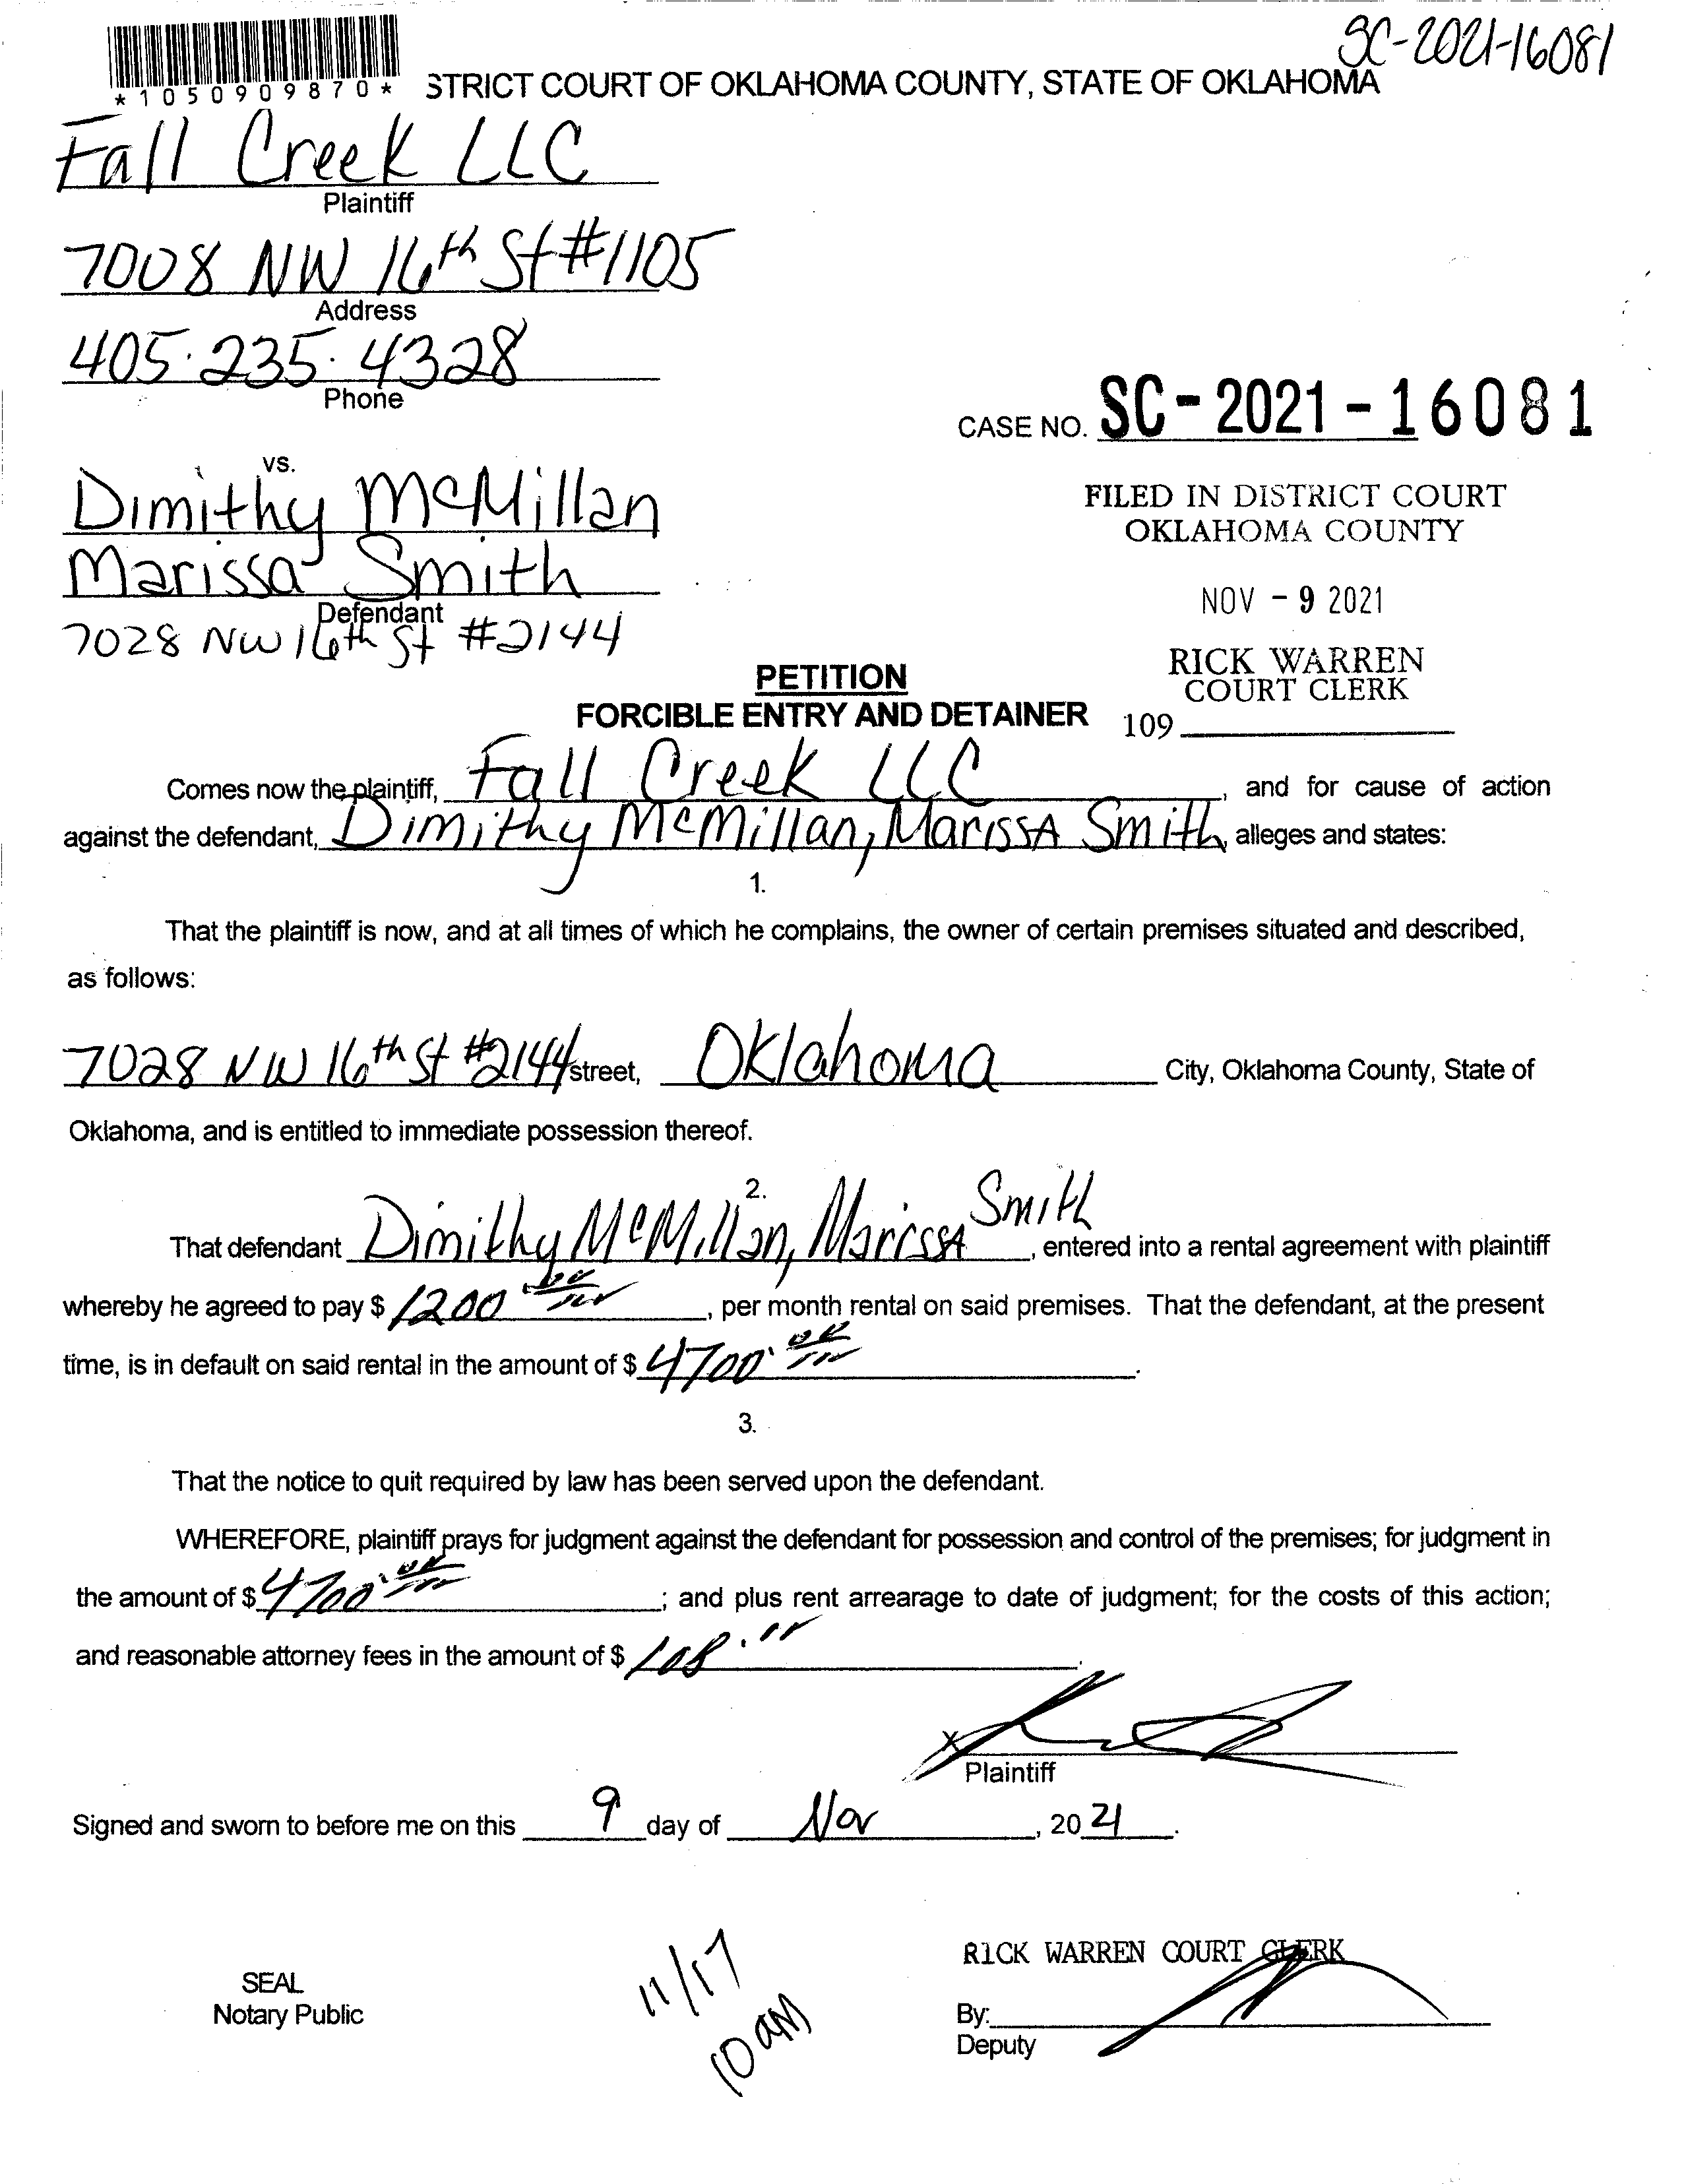 SC-2021-16081
*1050909870*
STRICT COURT OF OKLAHOMA COUNTY, STATE OF OKLAHOMA
Fall Creek LLC
Plaintiff
7008 NW 16th St #1105
Address
405.235.4328
Phone
CASE NO. SC-2021-16081
vs.
Dimithy McMillan
Marissa Smith
Defendant
7028 NW 16th St #2144
FILED IN DISTRICT COURT
OKLAHOMA COUNTY
NOV -9 2021
RICK WARREN
COURT CLERK
109
PETITION
FORCIBLE ENTRY AND DETAINER
Comes now the plaintiff, Fall Creek LLC, and for cause of action
against the defendant, Dimithy McMillan, Marissa Smith, alleges and states:
1.
That the plaintiff is now, and at all times of which he complains, the owner of certain premises situated and described,
as follows:
7028 NW 16th St #2144 street, Oklahoma City, Oklahoma County, State of
Oklahoma, and is entitled to immediate possession thereof.
2.
That defendant Dimithy McMillan, Marissa Smith, entered into a rental agreement with plaintiff
whereby he agreed to pay $ 1200, per month rental on said premises. That the defendant, at the present
time, is in default on said rental in the amount of $ 4700.
3.
That the notice to quit required by law has been served upon the defendant.
WHEREFORE, plaintiff prays for judgment against the defendant for possession and control of the premises; for judgment in
the amount of $ 4700; and plus rent arrearage to date of judgment; for the costs of this action;
and reasonable attorney fees in the amount of $
X
Plaintiff
Signed and sworn to before me on this 9 day of Nov, 2021.
SEAL
Notary Public
11/17
10 am
RICK WARREN COURT CLERK
By:
Deputy